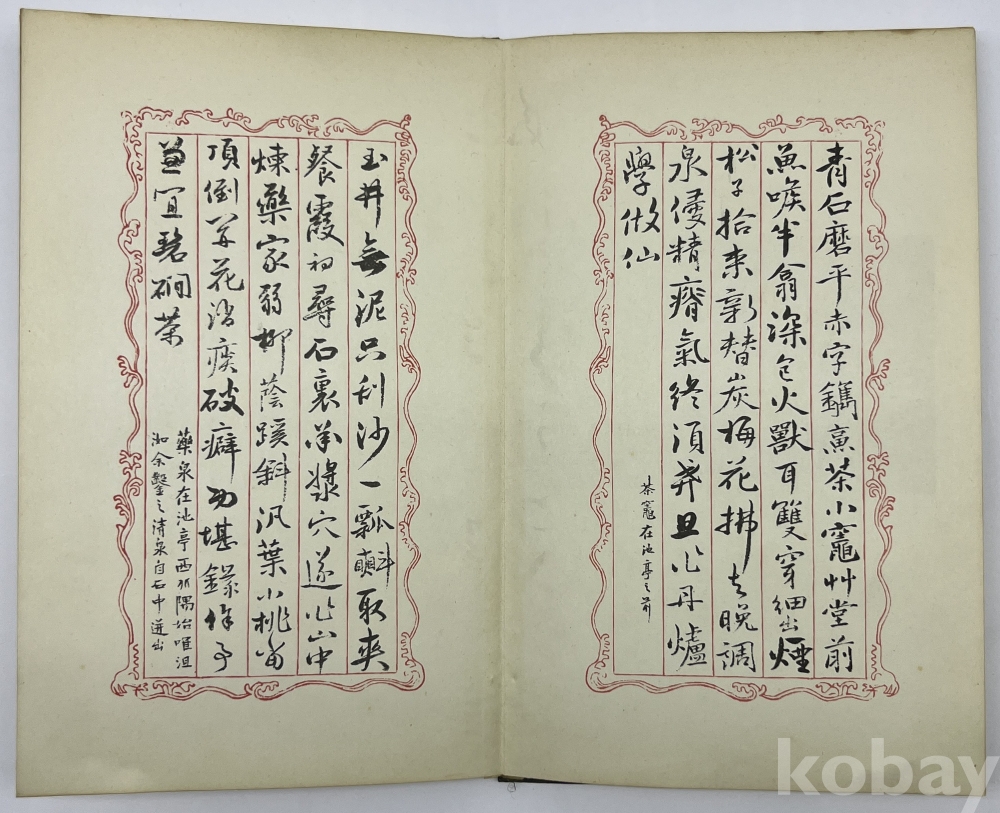 青石磨平赤字鐫烹茶小竈艸堂前
魚喉半翕深包火獸耳雙穿細出煙
松子拾來新替炭梅花拂去晚調
泉侵精瘠氣終須弃且作丹爐
學做仙
茶竈在池亭之前
玉井無泥只刮沙一瓢取爽
餐霞初尋石裏承漿穴遂作山中
煉藥家弱柳蔭蹊斜汎葉小桃當
頂倒開花消痰破癖功堪錄餘事
兼宜碧磵茶
藥泉在池亭西北隅始唯沮
洳余鑿之清泉自石中迸出
kobay